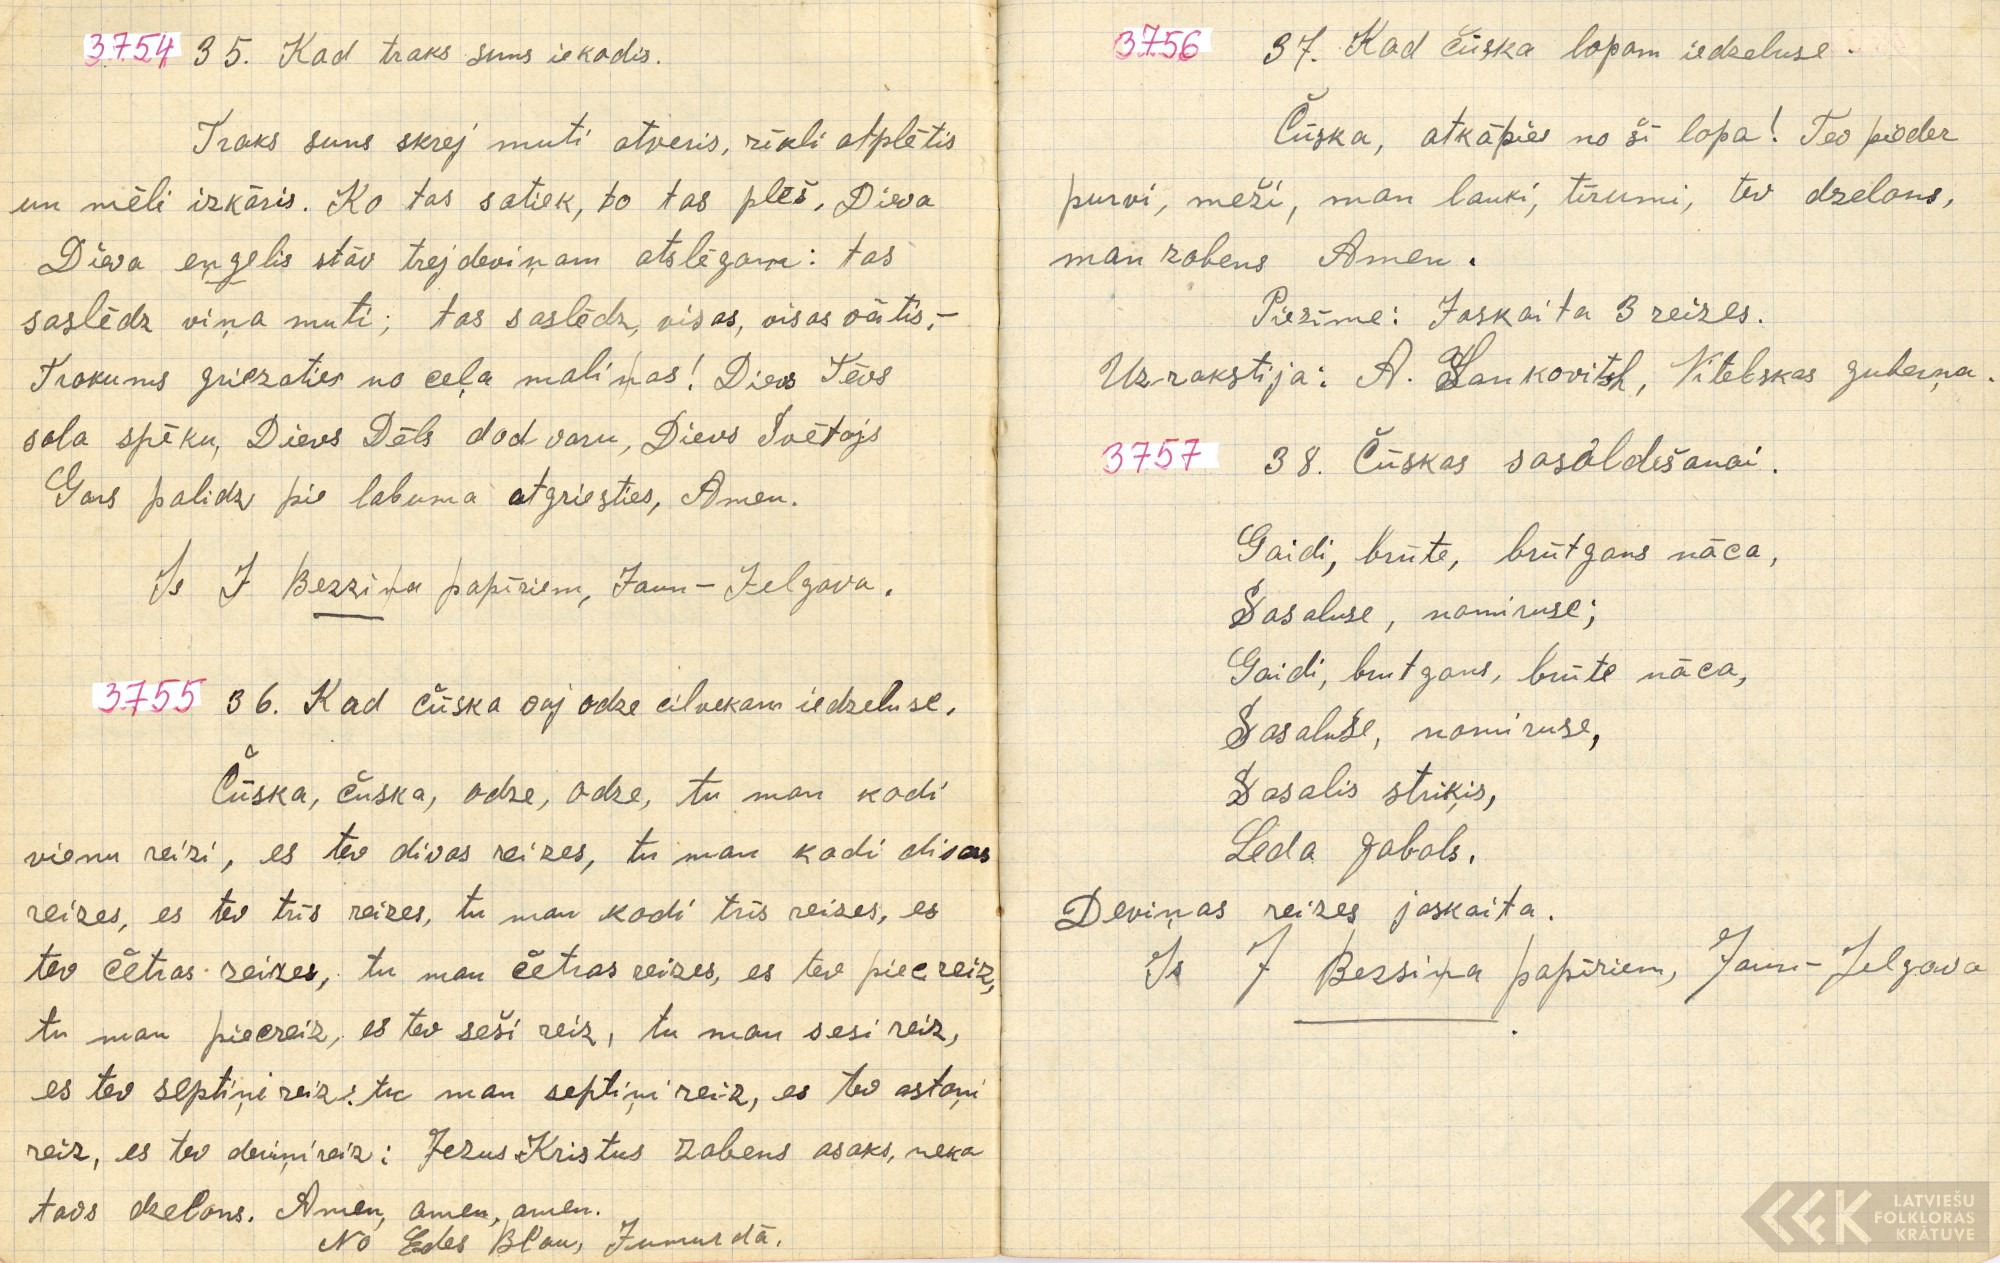 3754 35. Kad traks suns iekodis.
Traks suns skrej muti atveris, rīkli atplētis
un mēli izkāris. Ko tas satiek, to tas plēš, Dieva
Dieva eņgelis stāv trejdeviņam atslēgam: tas
saslēdz viņa muti; tas saslēdz, visas, visas vātis,-
Trakums griezaties no ceļa maliņas! Dievs Tēvs
sola spēku, Dievs Dēls dod varu, Dievs Svētajs
Gars palidz pie labuma atgriesties, Amen.
Is J Bezziņa papīriem, Jaun-Jelgava.
3755 36. Kad čūska vaj odze cilvekam iedzeluse.
Čūska, čuska, odze, odze, tu man kodi
vienu reizi, es tev divas reizes, tu man kodi divas
reizes, es tev trīs reizes, tu man kodi trīs reizes, es
tev četras reizes, tu man četras reizes, es tev piec reiz,
tu man piecreiz, es tev seši reiz, tu man sesi reiz,
es tev septiņi reiz: tu man septiņi reiz, es tev astoņi
reiz, es tev deviņi reiz: Jezus Kristus zobens asaks, neka
tavs dzelons. Amen, amen, amen.
No Edes Blau, Jumurdā.
3756 37. Kad čūska lopam iedzeluse.
Čūska, atkāpies no šī lopa! Tev pieder
purvi, meži, man lauki, tīrumi, tev dzelons,
man zobens Amen.
Piezīme: Jaskaita 3 reizes.
Uzrakstija: A. Sankovitsh, Vitebskas guberņa.
3757 38. Čūskas sasāldešanai.
Gaidi, brūte, brūtgans nāca,
Sasaluse, nomiruse;
Gaidi, brutgans, brūte nāca,
Sasaluse, nomiruse,
Sasalis striķis,
Leda gabals.
Deviņas reizes jaskaita.
Is J Bezziņa papīriem, Jaun-Jelgava
LATVIEŠU
FOLKLORAS
KRĀTUVE